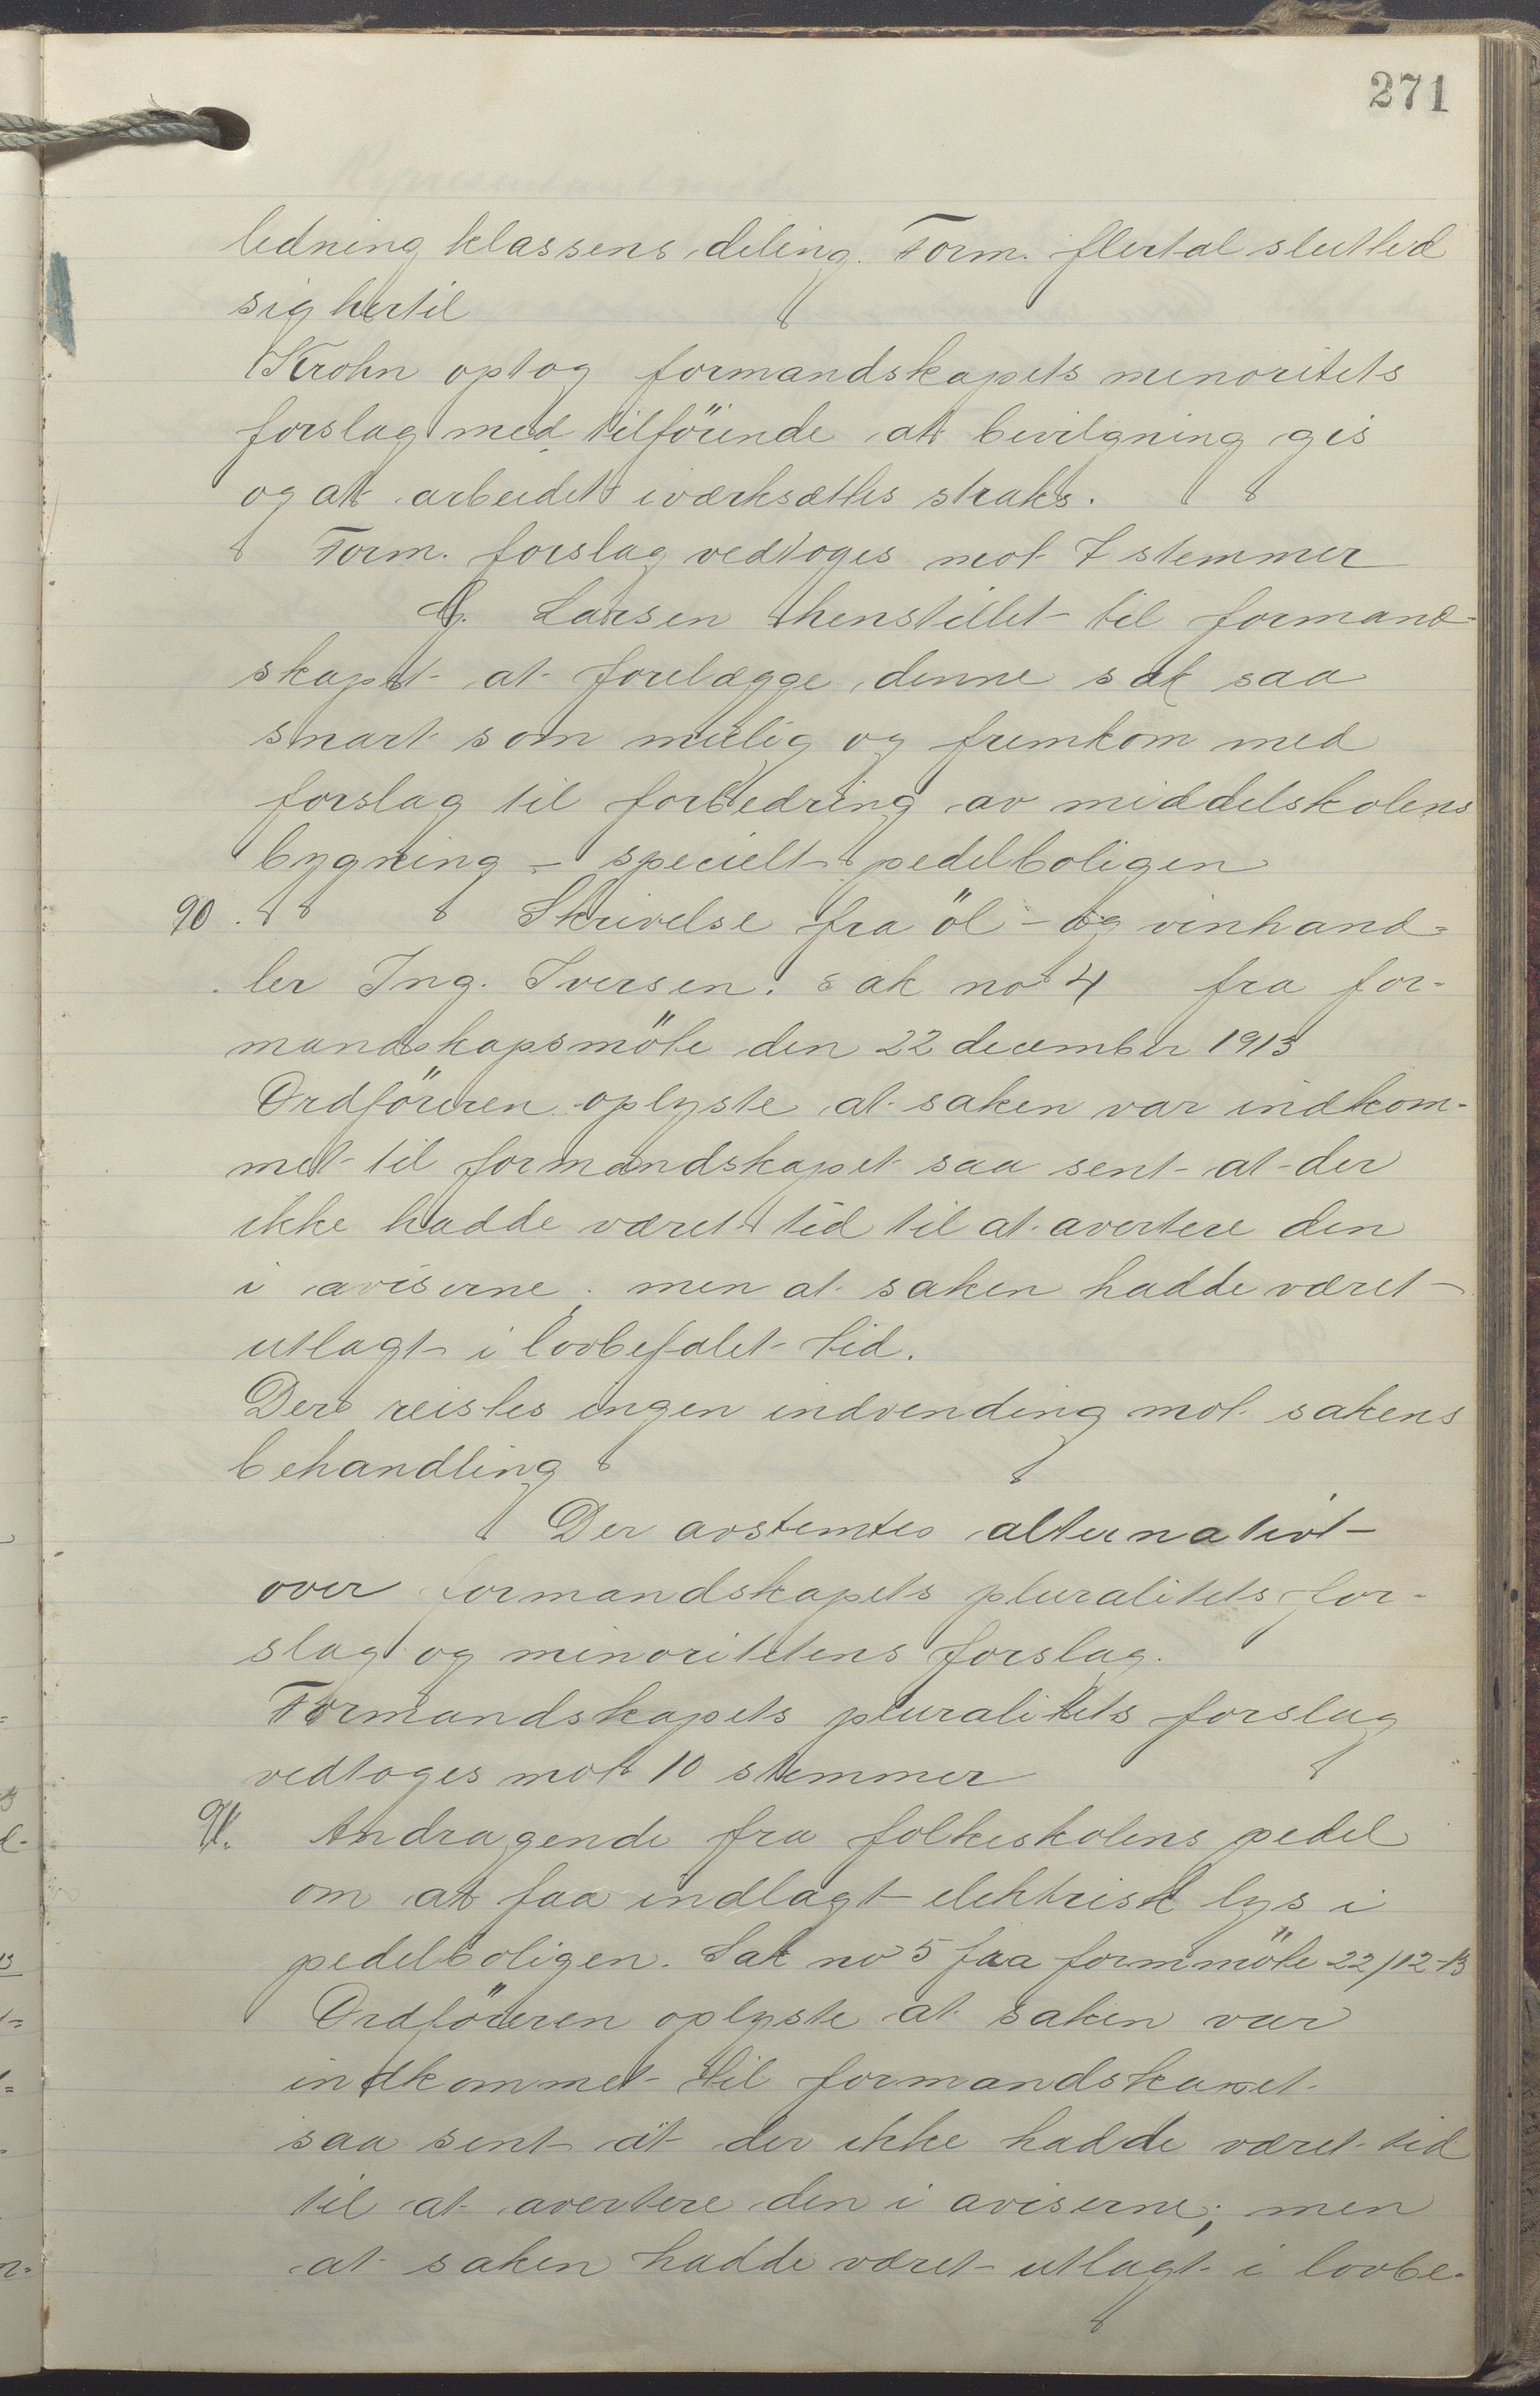 271
ledning klassens deling. Form. flertal slutted
sig hertil
Krohn optog formandskapets minoritets
forslag med tilföiende at bevilgning gis
og at arbeidet iværksættes straks.
Form. forslag vedtoges mot 7 stemmer
Larsen henstillet til formand-
skapet at forelægge denne sak saa
snart som mulig og fremkom med
forslag til forbedring av middelskolens
bygning - specielt pedelboligen
90. Skrivelse fra öl- og vinhand-
ler Ing. Iversen. sak no 4 fra for-
mandskapsmöte den 22 december 1913
Ordföreren oplyste at saken var indkom-
met til formandskapet saa sent at der
ikke hadde været tid til at avertere den
i aviserne; men at saken hadde været
utlagt i lovbefalet tid.
Der reistes ingen indvending mot sakens
behandling
Der avstemtes alternativt
over formandskapets pluralitets for-
slag og minoritetens forslag.
Formandskapets pluralitets forslag
vedtoges mot 10 stemmer
91. Andragende fra folkeskolens pedel
om at faa indlagt elektrisk lys i
pedelboligen. Sak no 5 fra formmöte 22/12-13
Ordföreren oplyste at saken var
indkommet til formandskapet
saa sent at der ikke hadde været tid
til at avertere den i aviserne; men
at saken hadde været utlagt i lovbe-